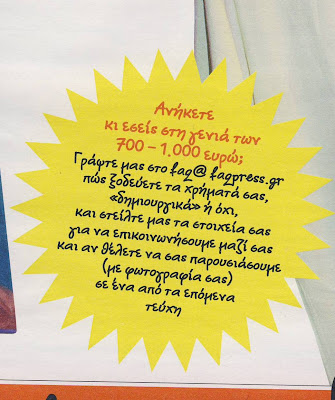 Ανήκετε
κι εσείς στη γενιά των
700 – 1,000 ευρώ;
Γράψτε μας στο faq@faqpress.gr
πώς ξοδεύετε τα χρήματά σας,
«δημιουργικά» ή όχι,
και στείλτε μας τα στοιχεία σας
για να επικοινωνήσουμε μαζί σας
και αν θέλετε να σας παρουσιάσουμε
(με φωτογραφία σας)
σε ένα από τα επόμενα
τεύχη